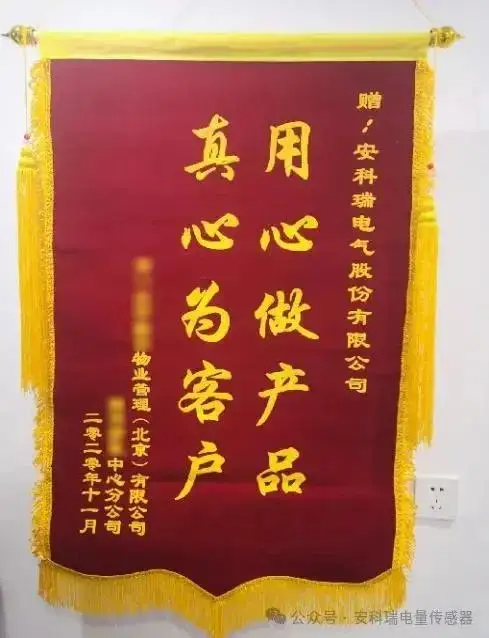 赠：安科瑞电气股份有限公司
用心做产品
真心为客户
物业管理（北京）有限公司
中心分公司
二零二零年十一月
公众号·安科瑞电量传感器